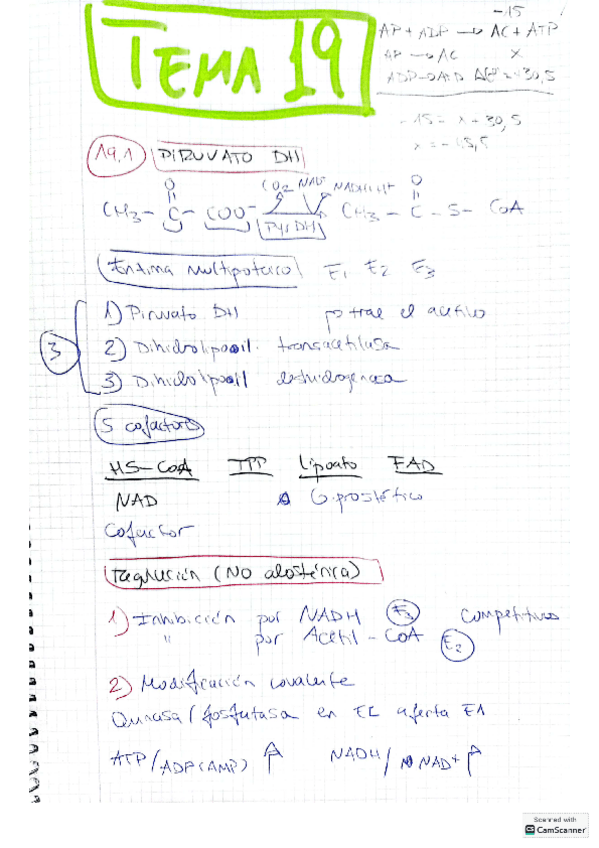 TEMA 19
-15
AP + ADP → AC + ATP
AP → AC x
ADP → ATP ΔG = +30,5
-15 = x + 30,5
x = -45,5
19.1 PIRUVATO DH
O O
CO2 NAD+ NADH+H+
CH3 - C - COO- CH3 - C - S - CoA
Pyr DH
E1 E2 E3
3
1) Piruvato DH trae el acetilo
2) Dihidrolipoil transacetilasa
3) Dihidrolipoil deshidrogenasa
5 cofactores
HS-CoA TPP Lipoato FAD
NAD G. prostético
Cofactor
Regulación (No alostérica)
1) Inhibición por NADH E3 Competitiva
" por Acetil-CoA E2
2) Modificación covalente
Quinasa/fosfatasa en EL afecta E1
ATP/ADP(AMP) ↑ NADH/NAD+ ↑
Scanned with
CS CamScanner